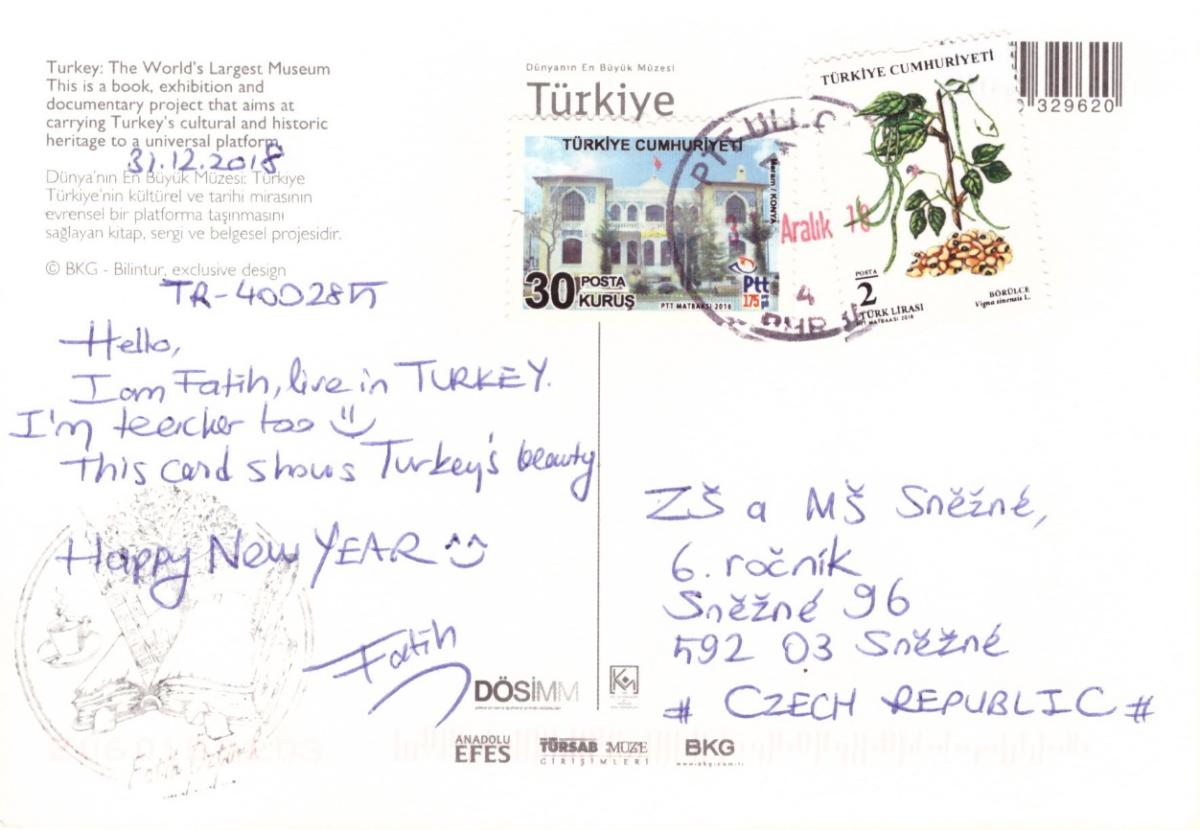 Turkey: The World's Largest Museum
This is a book, exhibition and
documentary project that aims at
carrying Turkey's cultural and historic
heritage to a universal platform.
31.12.2018
Dünya'nın En Büyük Müzesi: Türkiye
Türkiye'nin kültürel ve tarihi mirasının
evrensel bir platforma taşınmasını
sağlayan kitap, sergi ve belgesel projesidir.
© BKG - Bilintur, exclusive design
TR-4002855
Hello,
I am Fatih, live in TURKEY.
I'm teacher too
This card shows Turkey's beauty
Happy New YEAR ^^
Fatih
DÖSİMM
Dünyanın En Büyük Müzesi
Türkiye
TÜRKİYE CUMHURİYETİ
Meram / KONYA
30 POSTA
KURUŞ
Ptt
175
PTT MATBAASI 2016
Aralık 18
4
TÜRKİYE CUMHURİYETİ
POSTA
2
TÜRK LİRASI
PTT MATBAASI 2018
BÖRÜLCE
Vigna sinensis L.
329620
ZŠ a MŠ Sněžné,
6. ročník
Sněžné 96
592 03 Sněžné
# CZECH REPUBLIC #
ANADOLU
EFES
TÜRSAB MÜZE
GİRİŞİMLERİ
BKG
www.bkg.com.tr